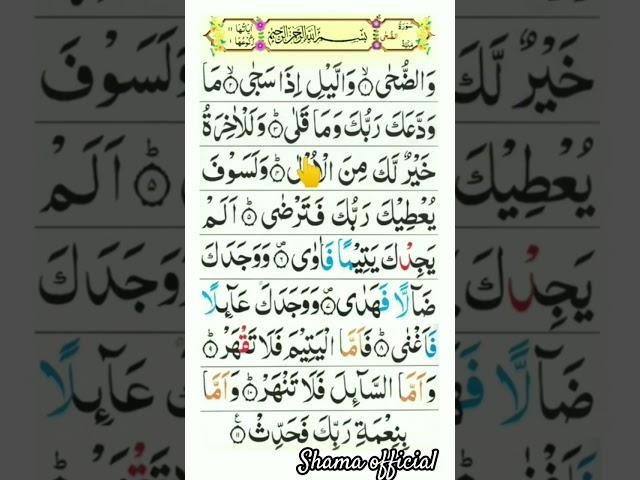 سورة الضحى مكية بِسْمِ اللهِ الرَّحْمٰنِ الرَّحِيْمِ اٰیاتها ۱۱ رکوعها ۱
وَالضُّحٰىۙ‏﴿۱﴾ وَالَّيْلِ اِذَا سَجٰىۙ‏﴿۲﴾ مَا
وَدَّعَكَ رَبُّكَ وَمَا قَلٰىؕ‏﴿۳﴾ وَلَلْاٰخِرَةُ
خَيْرٌ لَّكَ مِنَ الْاُوْلٰىؕ‏﴿۴﴾ وَلَسَوْفَ
يُعْطِيْكَ رَبُّكَ فَتَرْضٰىؕ‏﴿۵﴾ اَلَمْ
يَجِدْكَ يَتِيْمًا فَاٰوٰى‏﴿۶﴾ وَوَجَدَكَ
ضَآلًّا فَهَدٰى‏﴿۷﴾ وَوَجَدَكَ عَآئِلًا
فَاَغْنٰىؕ‏﴿۸﴾ فَاَمَّا الْيَتِيْمَ فَلَا تَقْهَرْؕ‏﴿۹﴾
وَاَمَّا السَّآئِلَ فَلَا تَنْهَرْؕ‏﴿۱۰﴾ وَاَمَّا
بِنِعْمَةِ رَبِّكَ فَحَدِّثْ‏﴿۱۱﴾
Shama official